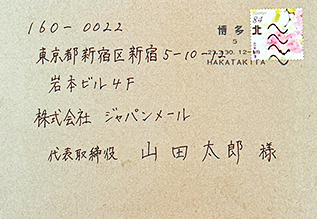 160-0022
東京都新宿区新宿5-10-
岩本ビル4F
株式会社 ジャパンメール
代表取締役 山田太郎 様
博多北
5
HAKATAKITA
84